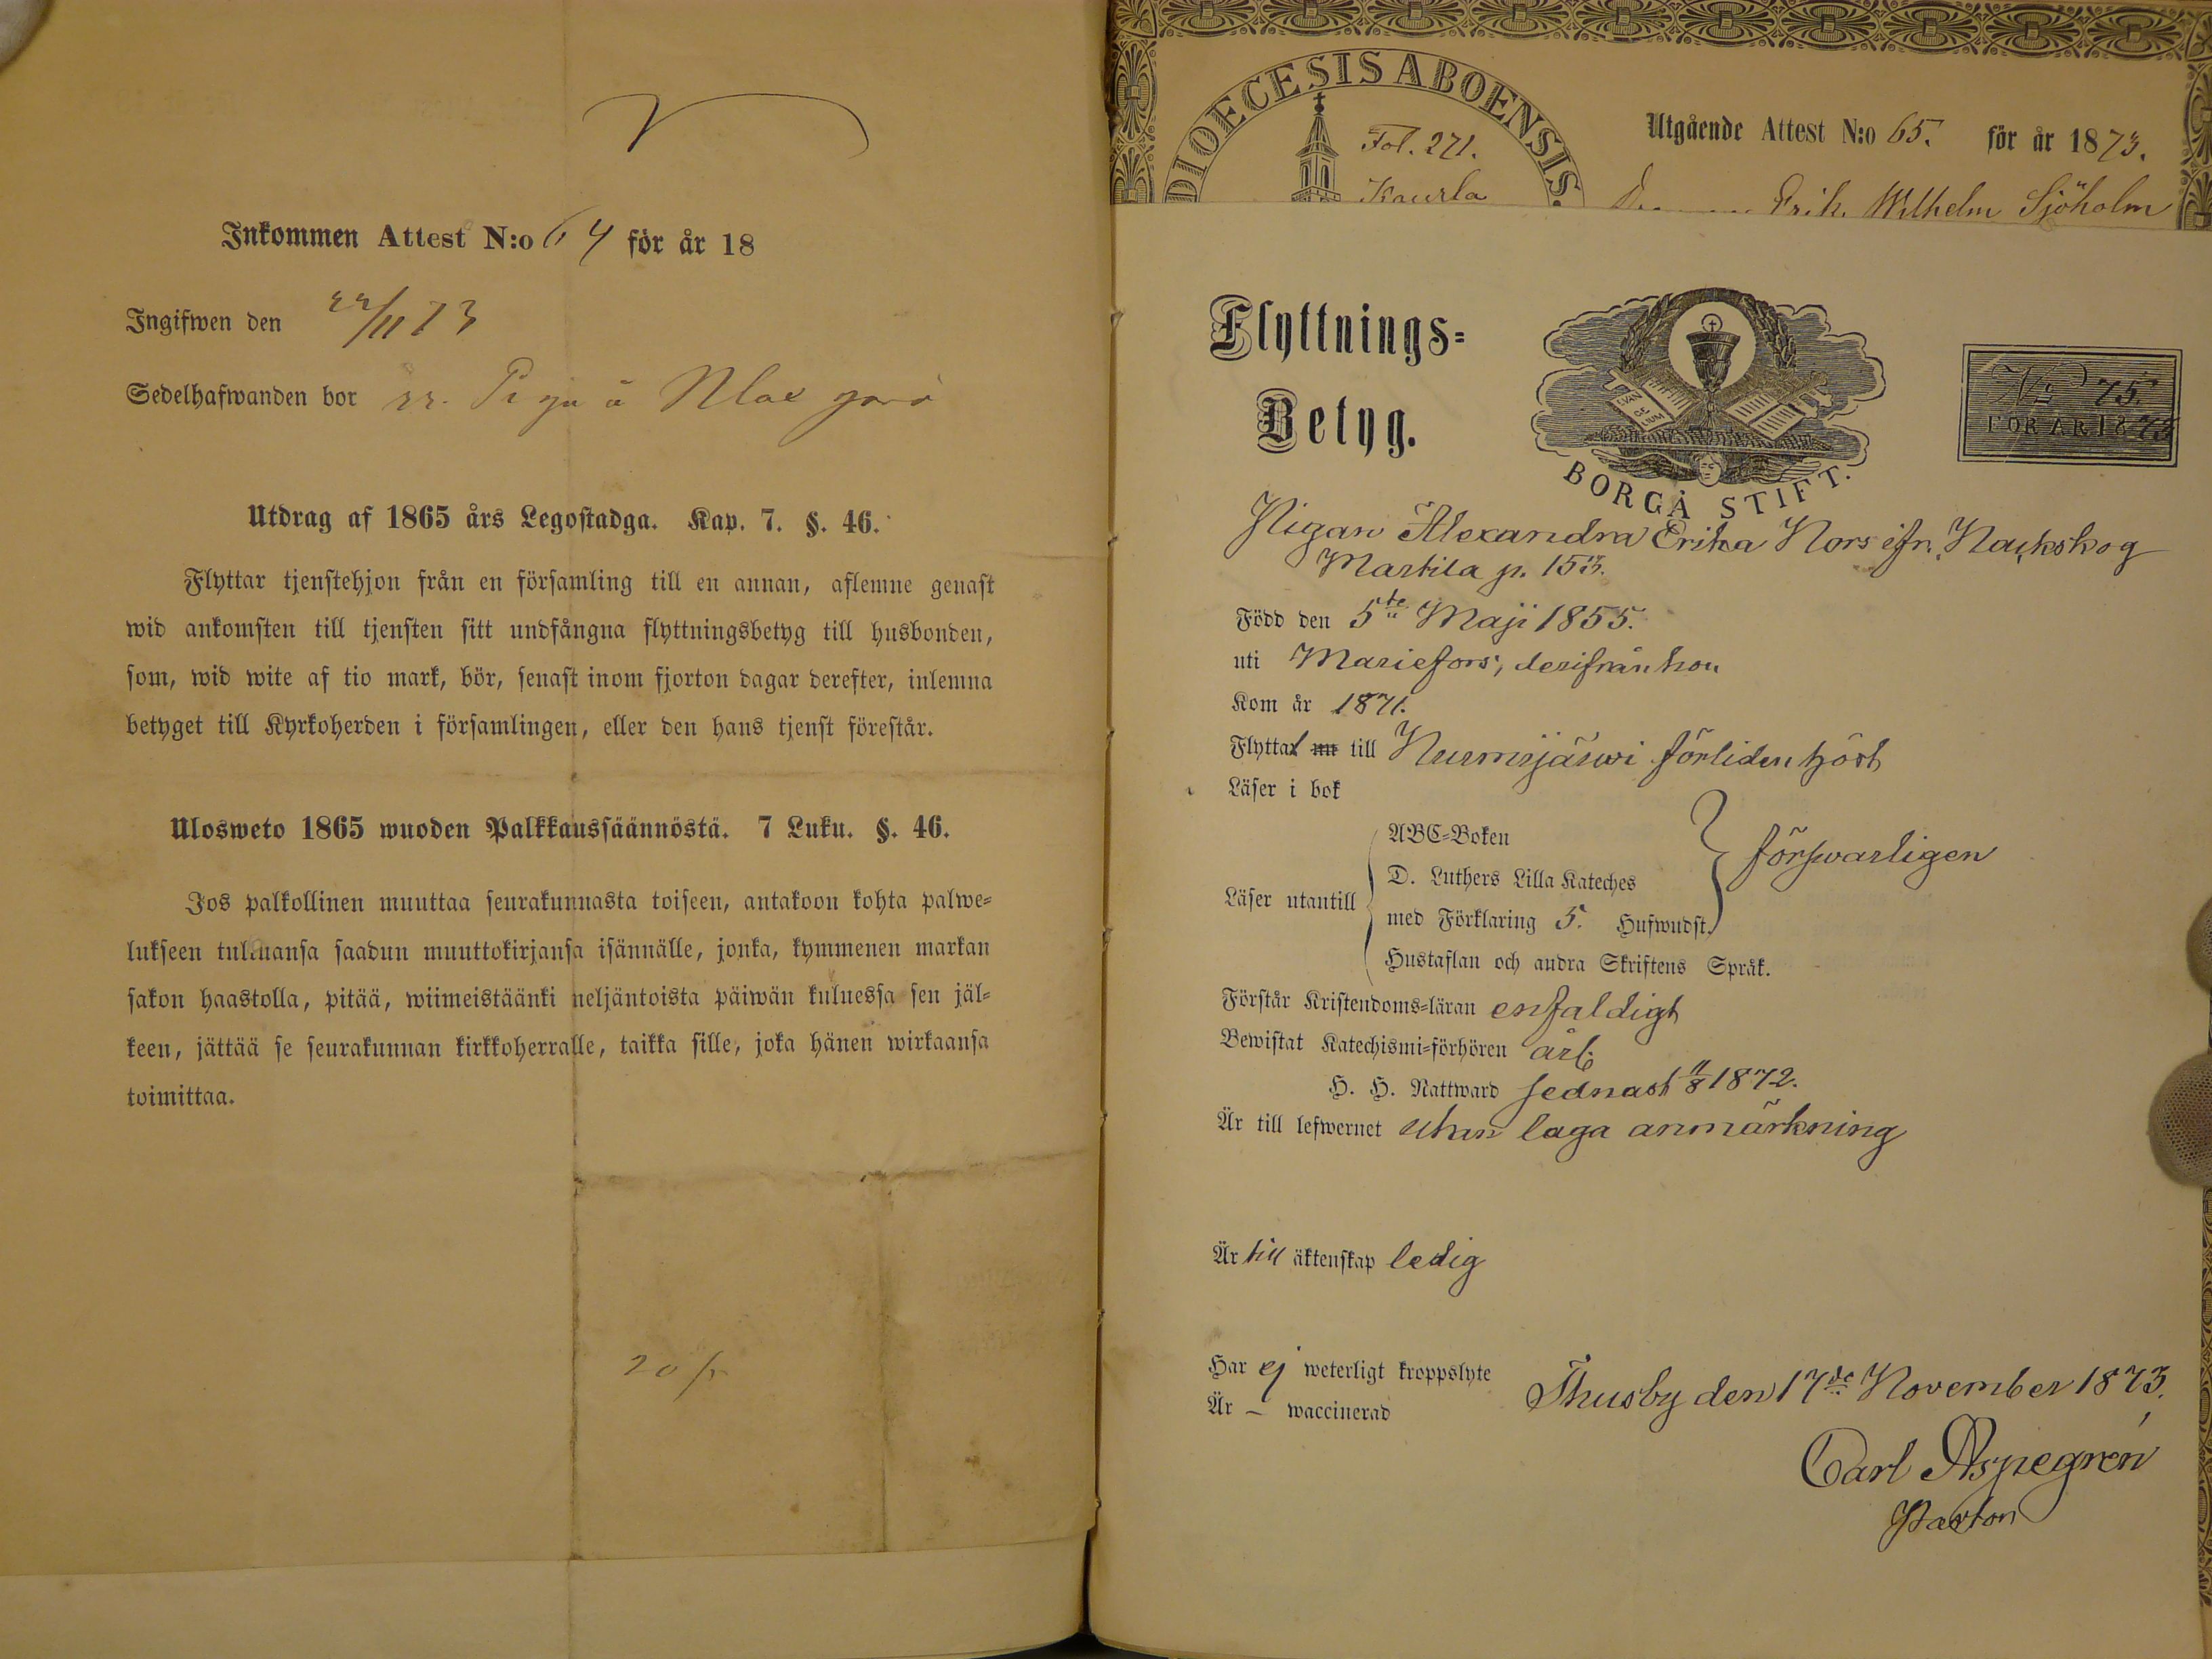 Inkommen Attest N:o 64 för år 18
Ingifwen den 22/11 73
Sedelhafwanden bor
Utdrag af 1865 års Legostadga. Kap. 7. §. 46.
Flyttar tjenstehjon från en församling till en annan, aflemne genast
wid ankomsten till tjensten sitt undfångna flyttningsbetyg till husbonden,
som, wid wite af tio mark, bör, senast inom fjorton dagar derefter, inlemna
betyget till Kyrkoherden i församlingen, eller den hans tjenst förestår.
Ulosweto 1865 wuoden Palkkaussäännöstä. 7 Luku. §. 46.
Jos palkollinen muuttaa seurakunnasta toiseen, antakoon kohta palwe=
lukseen tultuansa saadun muuttokirjansa isännälle, jonka, kymmenen markan
sakon haastolla, pitää, wiimeistäänki neljäntoista päiwän kuluessa sen jäl=
keen, jättää se seurakunnan kirkkoherralle, taikka sille, joka hänen wirkaansa
toimittaa.
20 p
DIOECESIS ABOENSIS.
Fol. 271.
Kaurla
Utgående Attest N:o 65. för år 1873.
Erik Wilhelm Sjöholm
Flyttnings=
Betyg.
EVAN GE LIUM
BORGÅ STIFT.
No 75.
FÖR ÅR 1873
Pigan Alexandra Erika Nors ifr. Nackskog
Martila p. 153.
Född den 5te Maji 1855.
uti Mariefors, derifrån hon
Kom år 1871.
Flyttat nu till Nurmijärwi förliden höst
Läser i bok
Läser utantill
ABC=Boken
D. Luthers Lilla Kateches
med Förklaring 5. Hufwudst.
Hustaflan och andra Skriftens Språk.
försvarligen
Förstår Kristendoms=läran enfaldigt
Bewistat Katechismi=förhören årl.
H. H. Nattward sednast 11/8 1872.
Är till lefwernet utan laga anmärkning
Är till äktenskap ledig
Har ej weterligt kroppslyte
Är — waccinerad
Thusby den 17de November 1873.
Carl Aspegren
Pastor